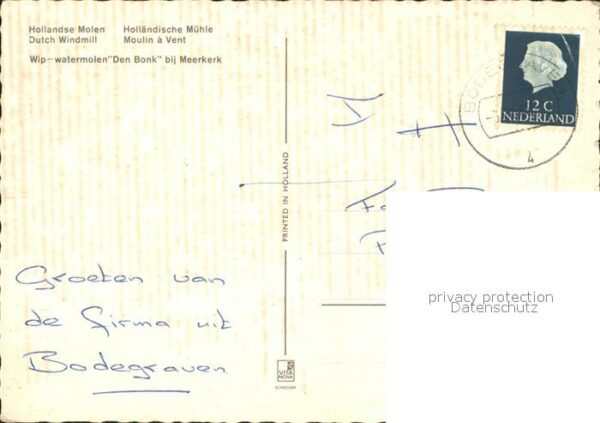 Hollandse Molen Holländische Mühle
Dutch Windmill Moulin à Vent
Wip-watermolen "Den Bonk" bij Meerkerk
12 C
NEDERLAND
PRINTED IN HOLLAND
Groeten van
de firma uit
Bodegraven
privacy protection
Datenschutz
VITA
NOVA
SCHIEDAM